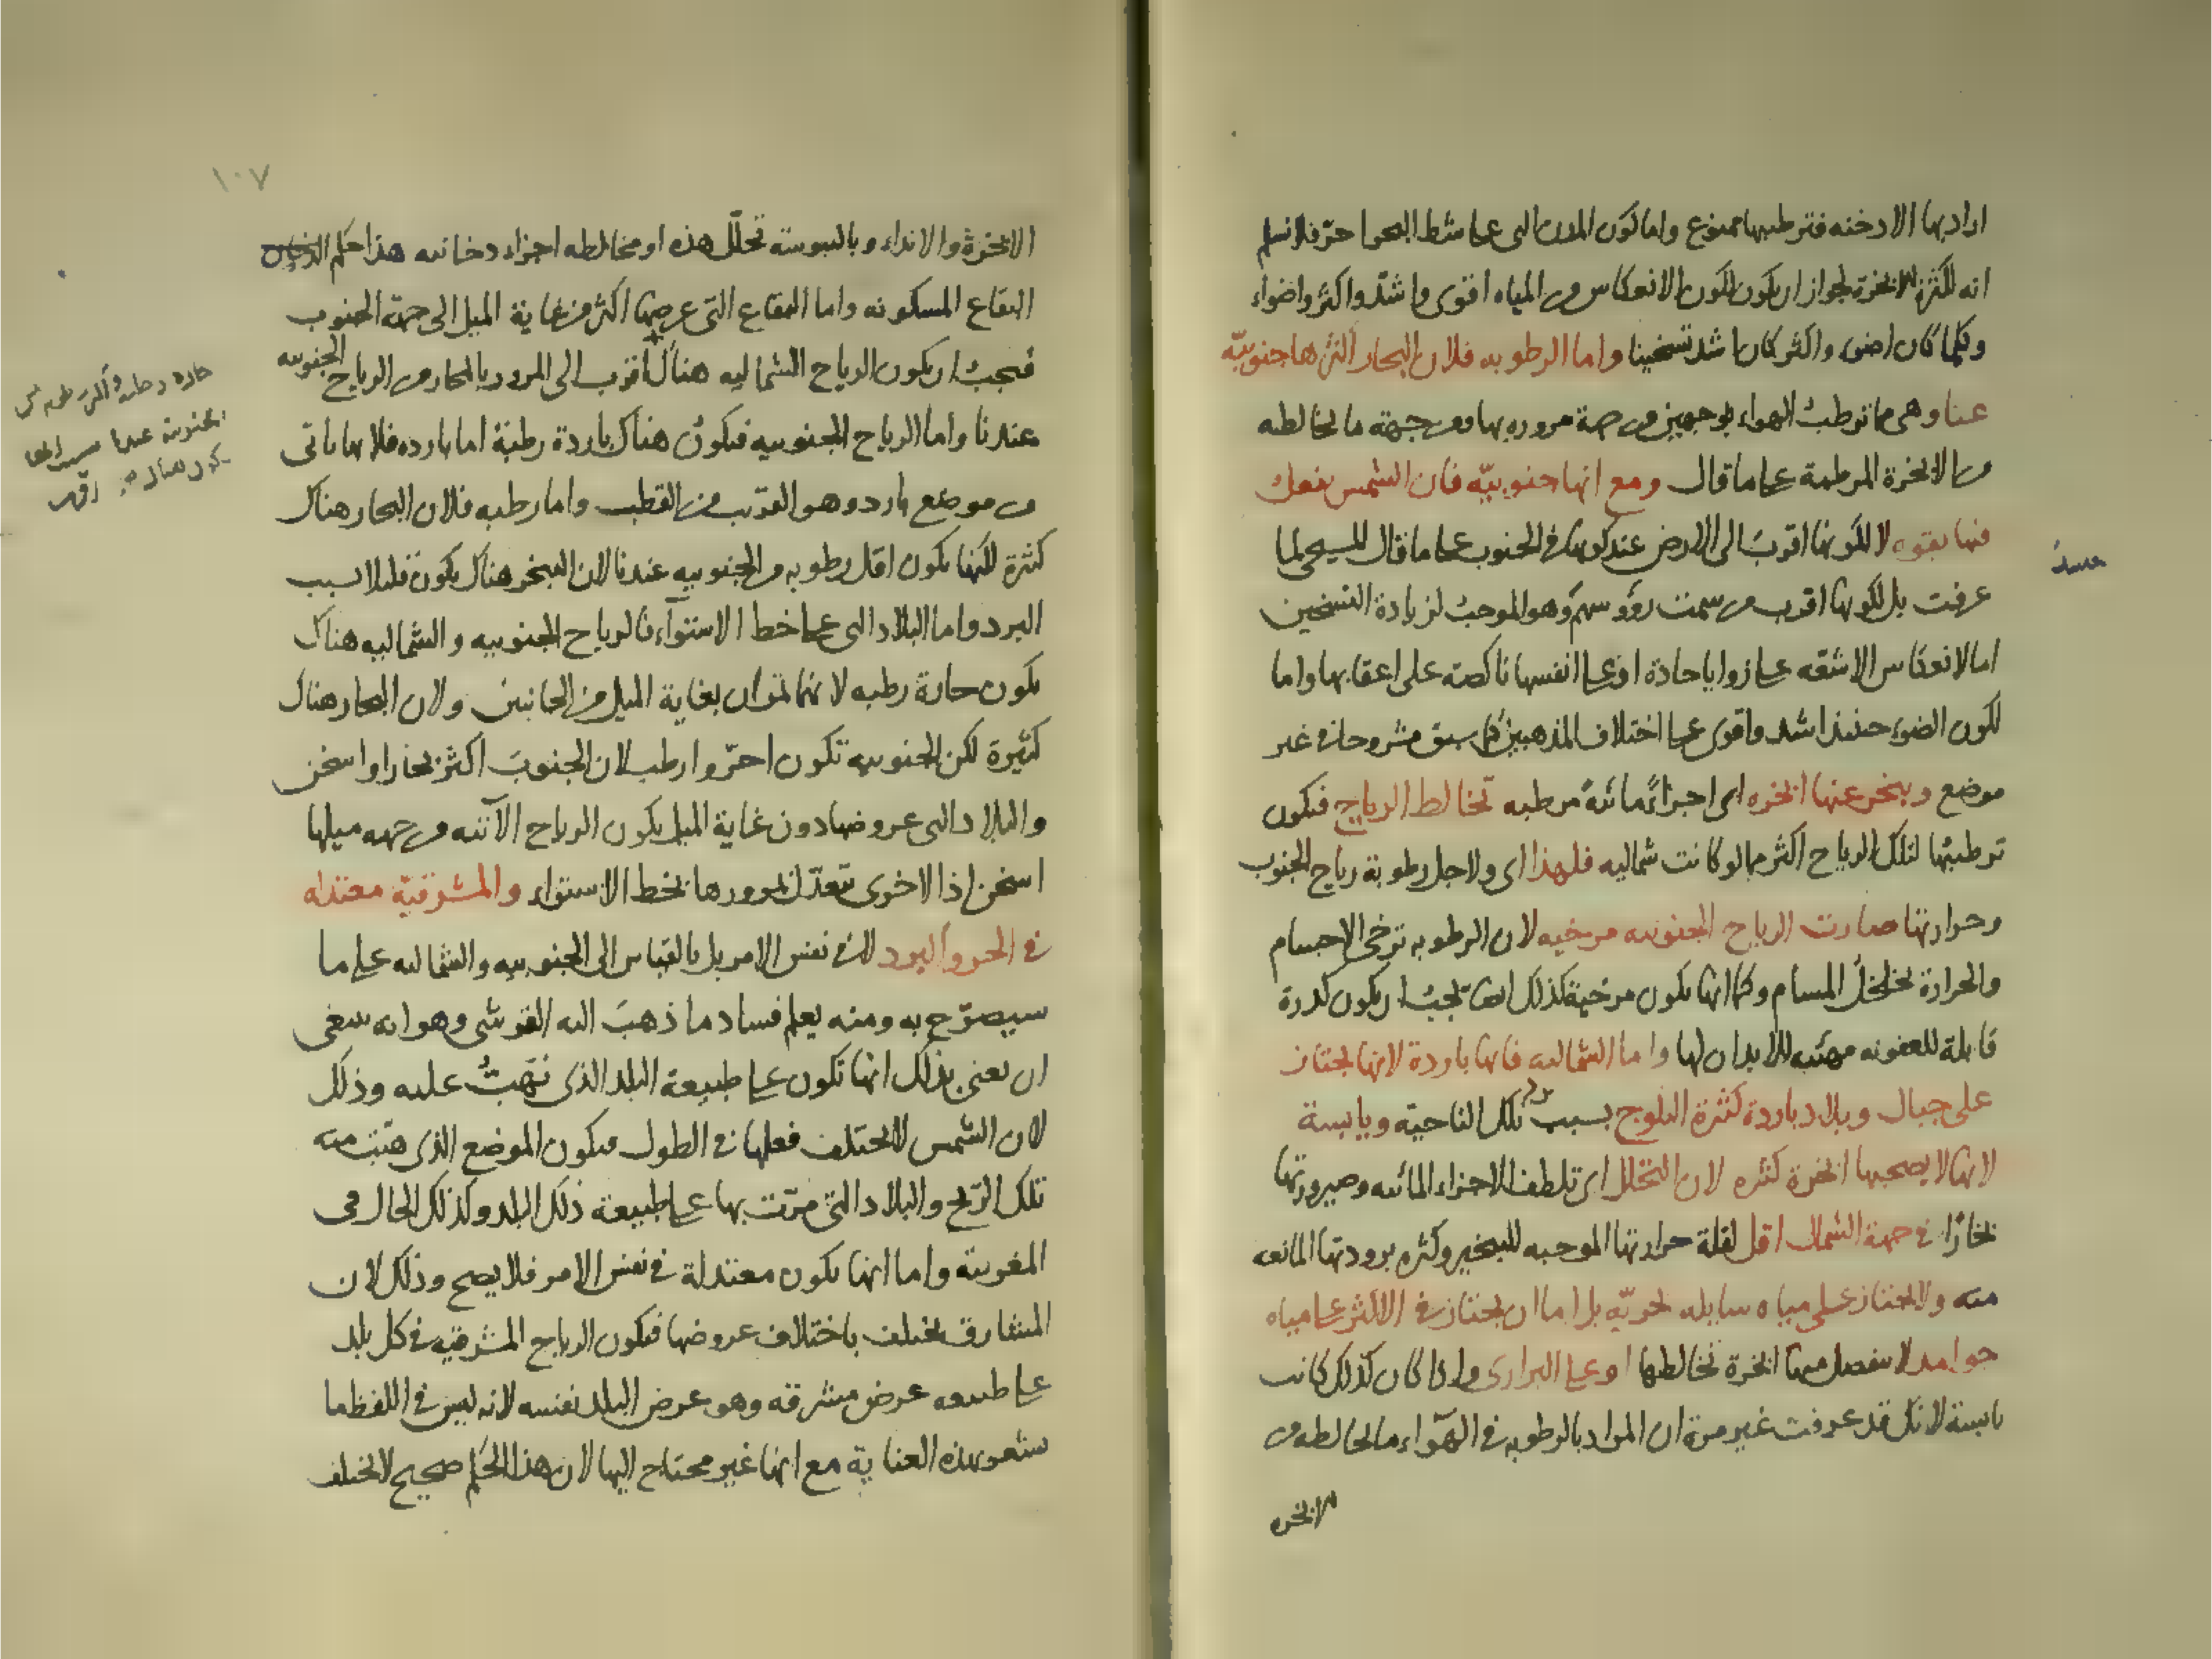 اراد بها الادخنه فترطيبها ممنوع واما لكون المدن التى على شط البحر احرّ فلا نسلم
انه لكثرة الابخرة لجواز ان يكون لكون الانعكاس من المياه اقوى واشدّ واكثر واضواء
وكلما كان اضوء واكثر كان اشد تسخينا واما الرطوبه فلان البحار اكثرها جنوبيّة
عنا وهى مما ترطب الهواء بوجهين من جهة مروره بها ومن جهة ما يخالطه
من الابخرة المرطبة على ما قال ومع انها جنوبيّه فان الشمس تفعل
فيها بقوه لا لكونها اقرب الى الارض عند كونها فى الجنوب على ما قال المسيحى لما
عرفت بل لكونها اقرب من سمت رؤوسهم وهو الموجب لزيادة التسخين
اما لانعكاس الاشعه على زوايا حادة او على انفسها ناكصة على اعقابها واما
لكون الضوء حينئذ اشد واقوى على اختلاف المذهبين كما سبق مشروحا فى غير
موضع ويبخر عنها ابخره اى اجزاءً مائيّة مرطبه تخالط الرياح فيكون
ترطيبها لتلك الرياح اكثر مما لو كانت شماليه فلهذا اى ولاجل رطوبة رياح الجنوب
وحرارتها صارت الرياح الجنوبيه مرخيه لان الرطوبه ترخى الاجسام
والحرارة تخلخل المسام وكما انها يكون مرخية كذلك ايضا يجب ان يكون كدرة
قابلة للعفونه مهيّئه للابدان لها واما الشماليه فانها باردة لانها تجتاز
على جبال وبلاد باردة كثيرة الثلوج بسبب برد تلك الناحيّه ويابسة
لانها لا يصحبها ابخرة كثيره لان التحلل اى تلطف الاجزاء المائيه وصيرورتها
بخارًا فى جهة الشمال اقل لقلة حرارتها الموجبه للتبخير وكثره برودتها المانعه
منه ولا تجتاز على مياه سايله بحريّه بل اما ان يجتاز فى الاكثر على مياه
جوامد لا ينفصل منها ابخرة تخالطها او على البرارى واذا كان كذلك كانت
يابسة لانك قد عرفت غير مرة ان المراد بالرطوبه فى الهواء ما يخالطه من
الابخره
١٠٧
الابخرة والانداء وباليبوسة تحلّل هذه او مخالطه اجزاء دخانيه هذا حكم
البقاع المسكونه واما البقاع التى عرضها اكثر من غاية الميل الى جهة الجنوب
فيجب ان يكون الرياح الشماليه هناك اقرب الى المرور بالبحار من الرياح الجنوبيه
عندنا واما الرياح الجنوبيه فيكون هناك باردة رطبة اما بارده فلانها تاتى
من موضع بارد وهو القريب من القطب واما رطبه فلان البحار هناك
كثيرة لكنها يكون اقل رطوبه من الجنوبيه عندنا لان التبخر هناك يكون قليلا بسبب
البرد واما البلاد التى على خط الاستوآء فالرياح الجنوبيه والشماليه هناك
يكون حارة رطبه لانهما تمران بغاية الميل من الجانبين ولان البحار هناك
كثيرة لكن الجنوبيه تكون احرّ وارطب لان الجنوب اكثر بخارا واسخن
والبلاد التى عروضها دون غاية الميل يكون الرياح الآتيه من جهه ميلها
اسخن اذ الاخرى تتعدّل بمرورها بخط الاستواء والمشرقيّة معتدله
فى الحر والبرد لا فى نفس الامر بل بالقياس الى الجنوبيه والشماليه على ما
سيصرّح به ومنه يعلم فساد ما ذهب اليه القرشى وهو انه ينبغى
ان يعنى بذلك انها تكون على طبيعة البلد الذى تهبّ عليه وذلك
لان الشمس لا يختلف فعلها فى الطول فيكون الموضع الذى هبّت منه
تلك الرّيح والبلاد التى مرّت بها على طبيعة ذلك البلد وكذلك الحال فى
المغربيّه واما انها يكون معتدلة فى نفس الامر فلا يصح وذلك لان
المشارق يختلف باختلاف عروضها فيكون الرياح المشرقيه فى كل بلد
على طبيعه عرض مشرقه وهو عرض البلد نفسه لانه ليس فى اللفظ ما
يشعر بهذه العناية مع انها غير محتاج اليها لان هذا الحكم صحيح لا يختلف
حاره رطبة
الجنوبيه عندنا